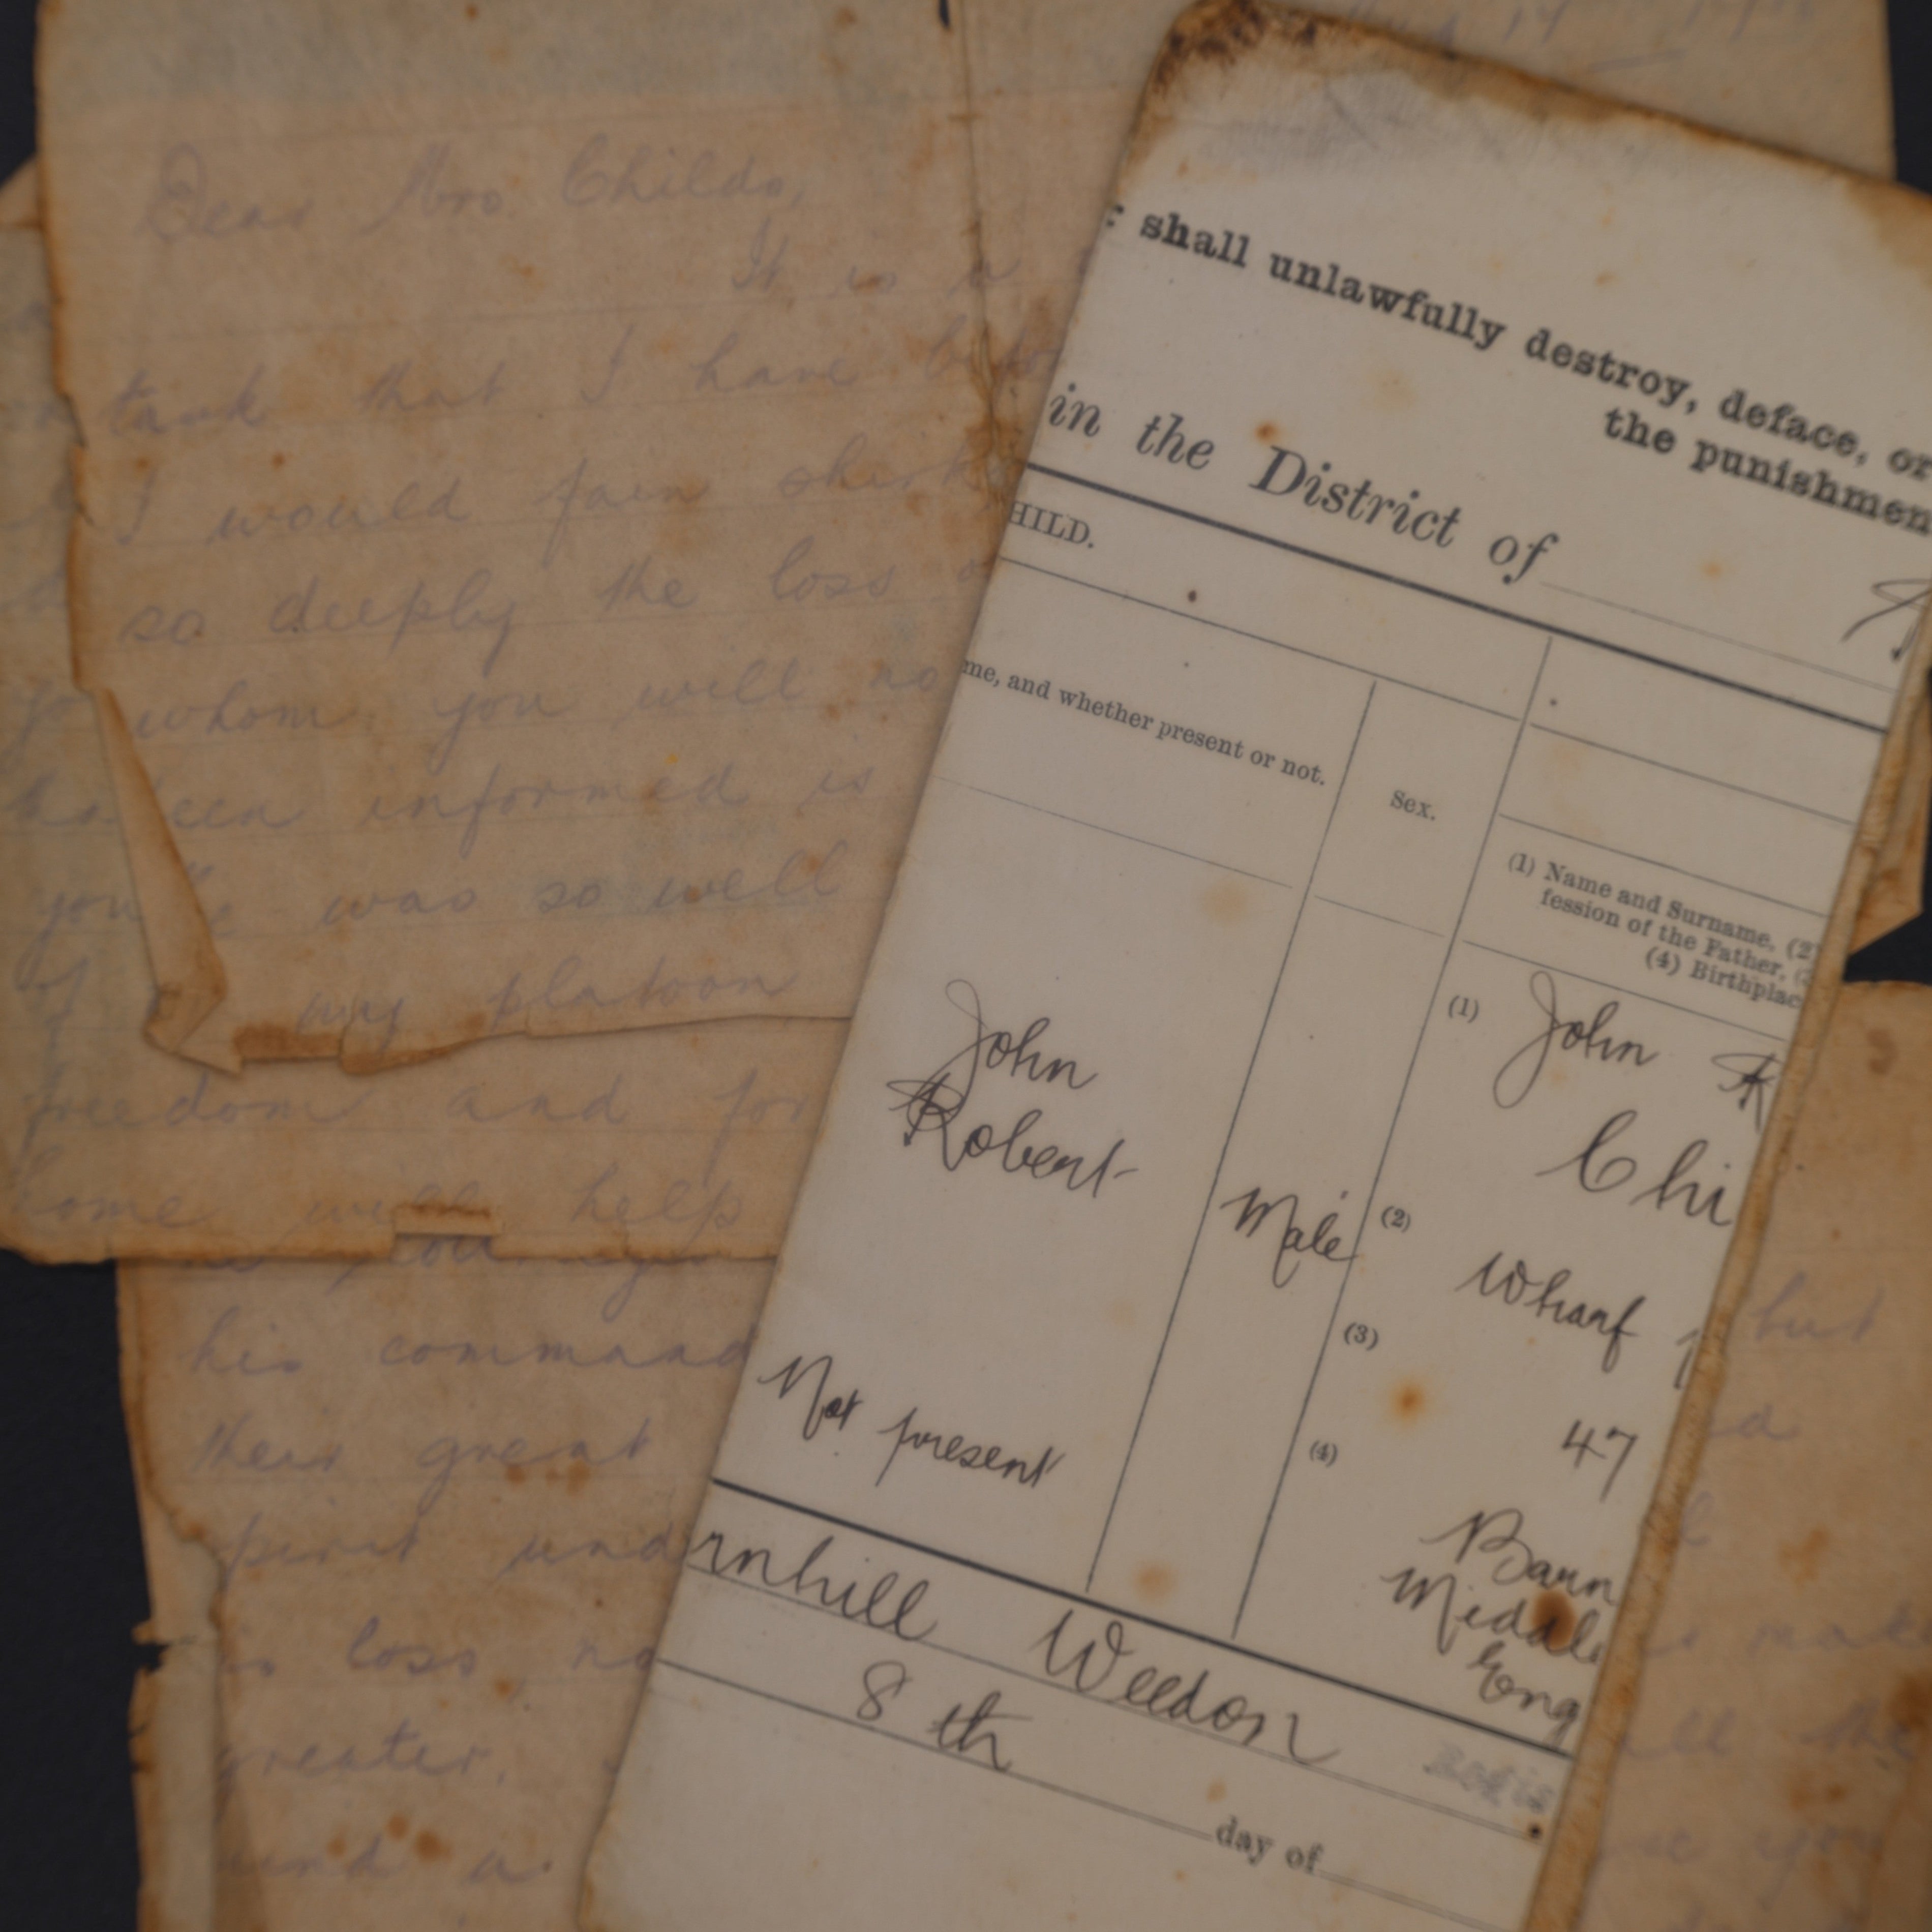 Dear Mrs. Childs,
It is a
task that I have befo
I would fain shirk
so deeply the loss o
whom you will no
been informed is
was so well
my platoon
freedom and for
home will help
you
his command
their great
spirit und
is loss, no
greater.
and a
shall unlawfully destroy, deface, or
the punishmen
in the District of
HILD.
me, and whether present or not.
Sex.
(1) Name and Surname. (2)
fession of the Father.
(4) Birthplac
John
Robert
Not present
Male
(1) John R
Chi
(2) Wharf
(3) 47
(4) Barn
Middle
Eng
rnhill Weedon
8th day of
but
mak
ll the
you